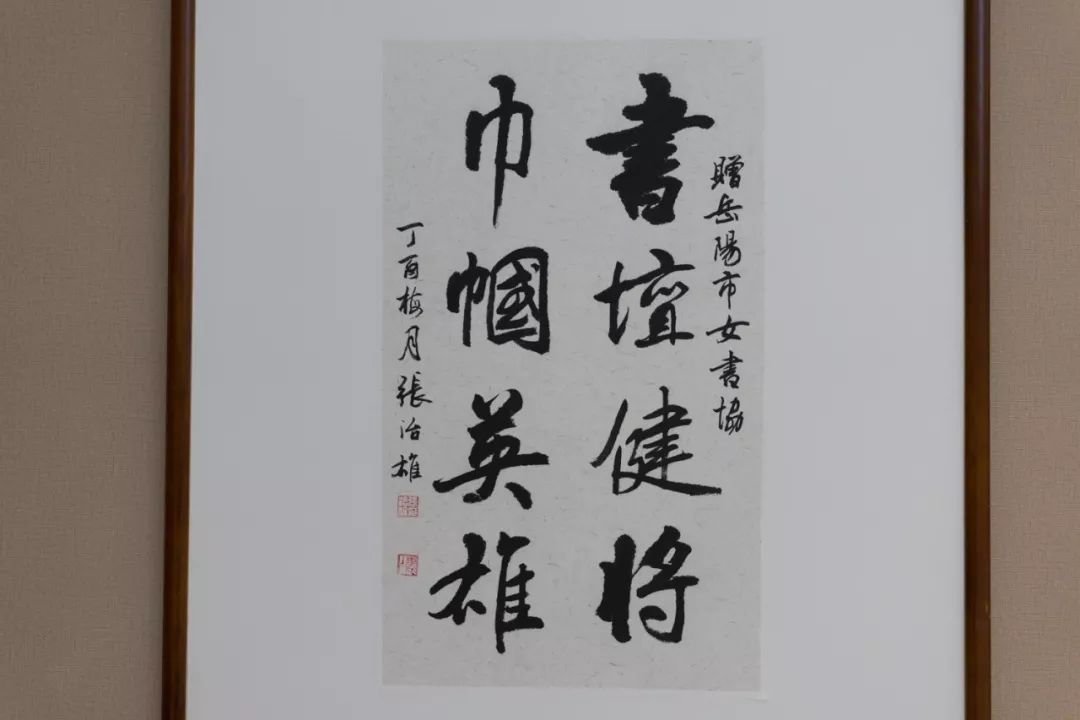 贈岳陽市女書協
書壇健将
巾帼英雄
丁酉梅月張治雄